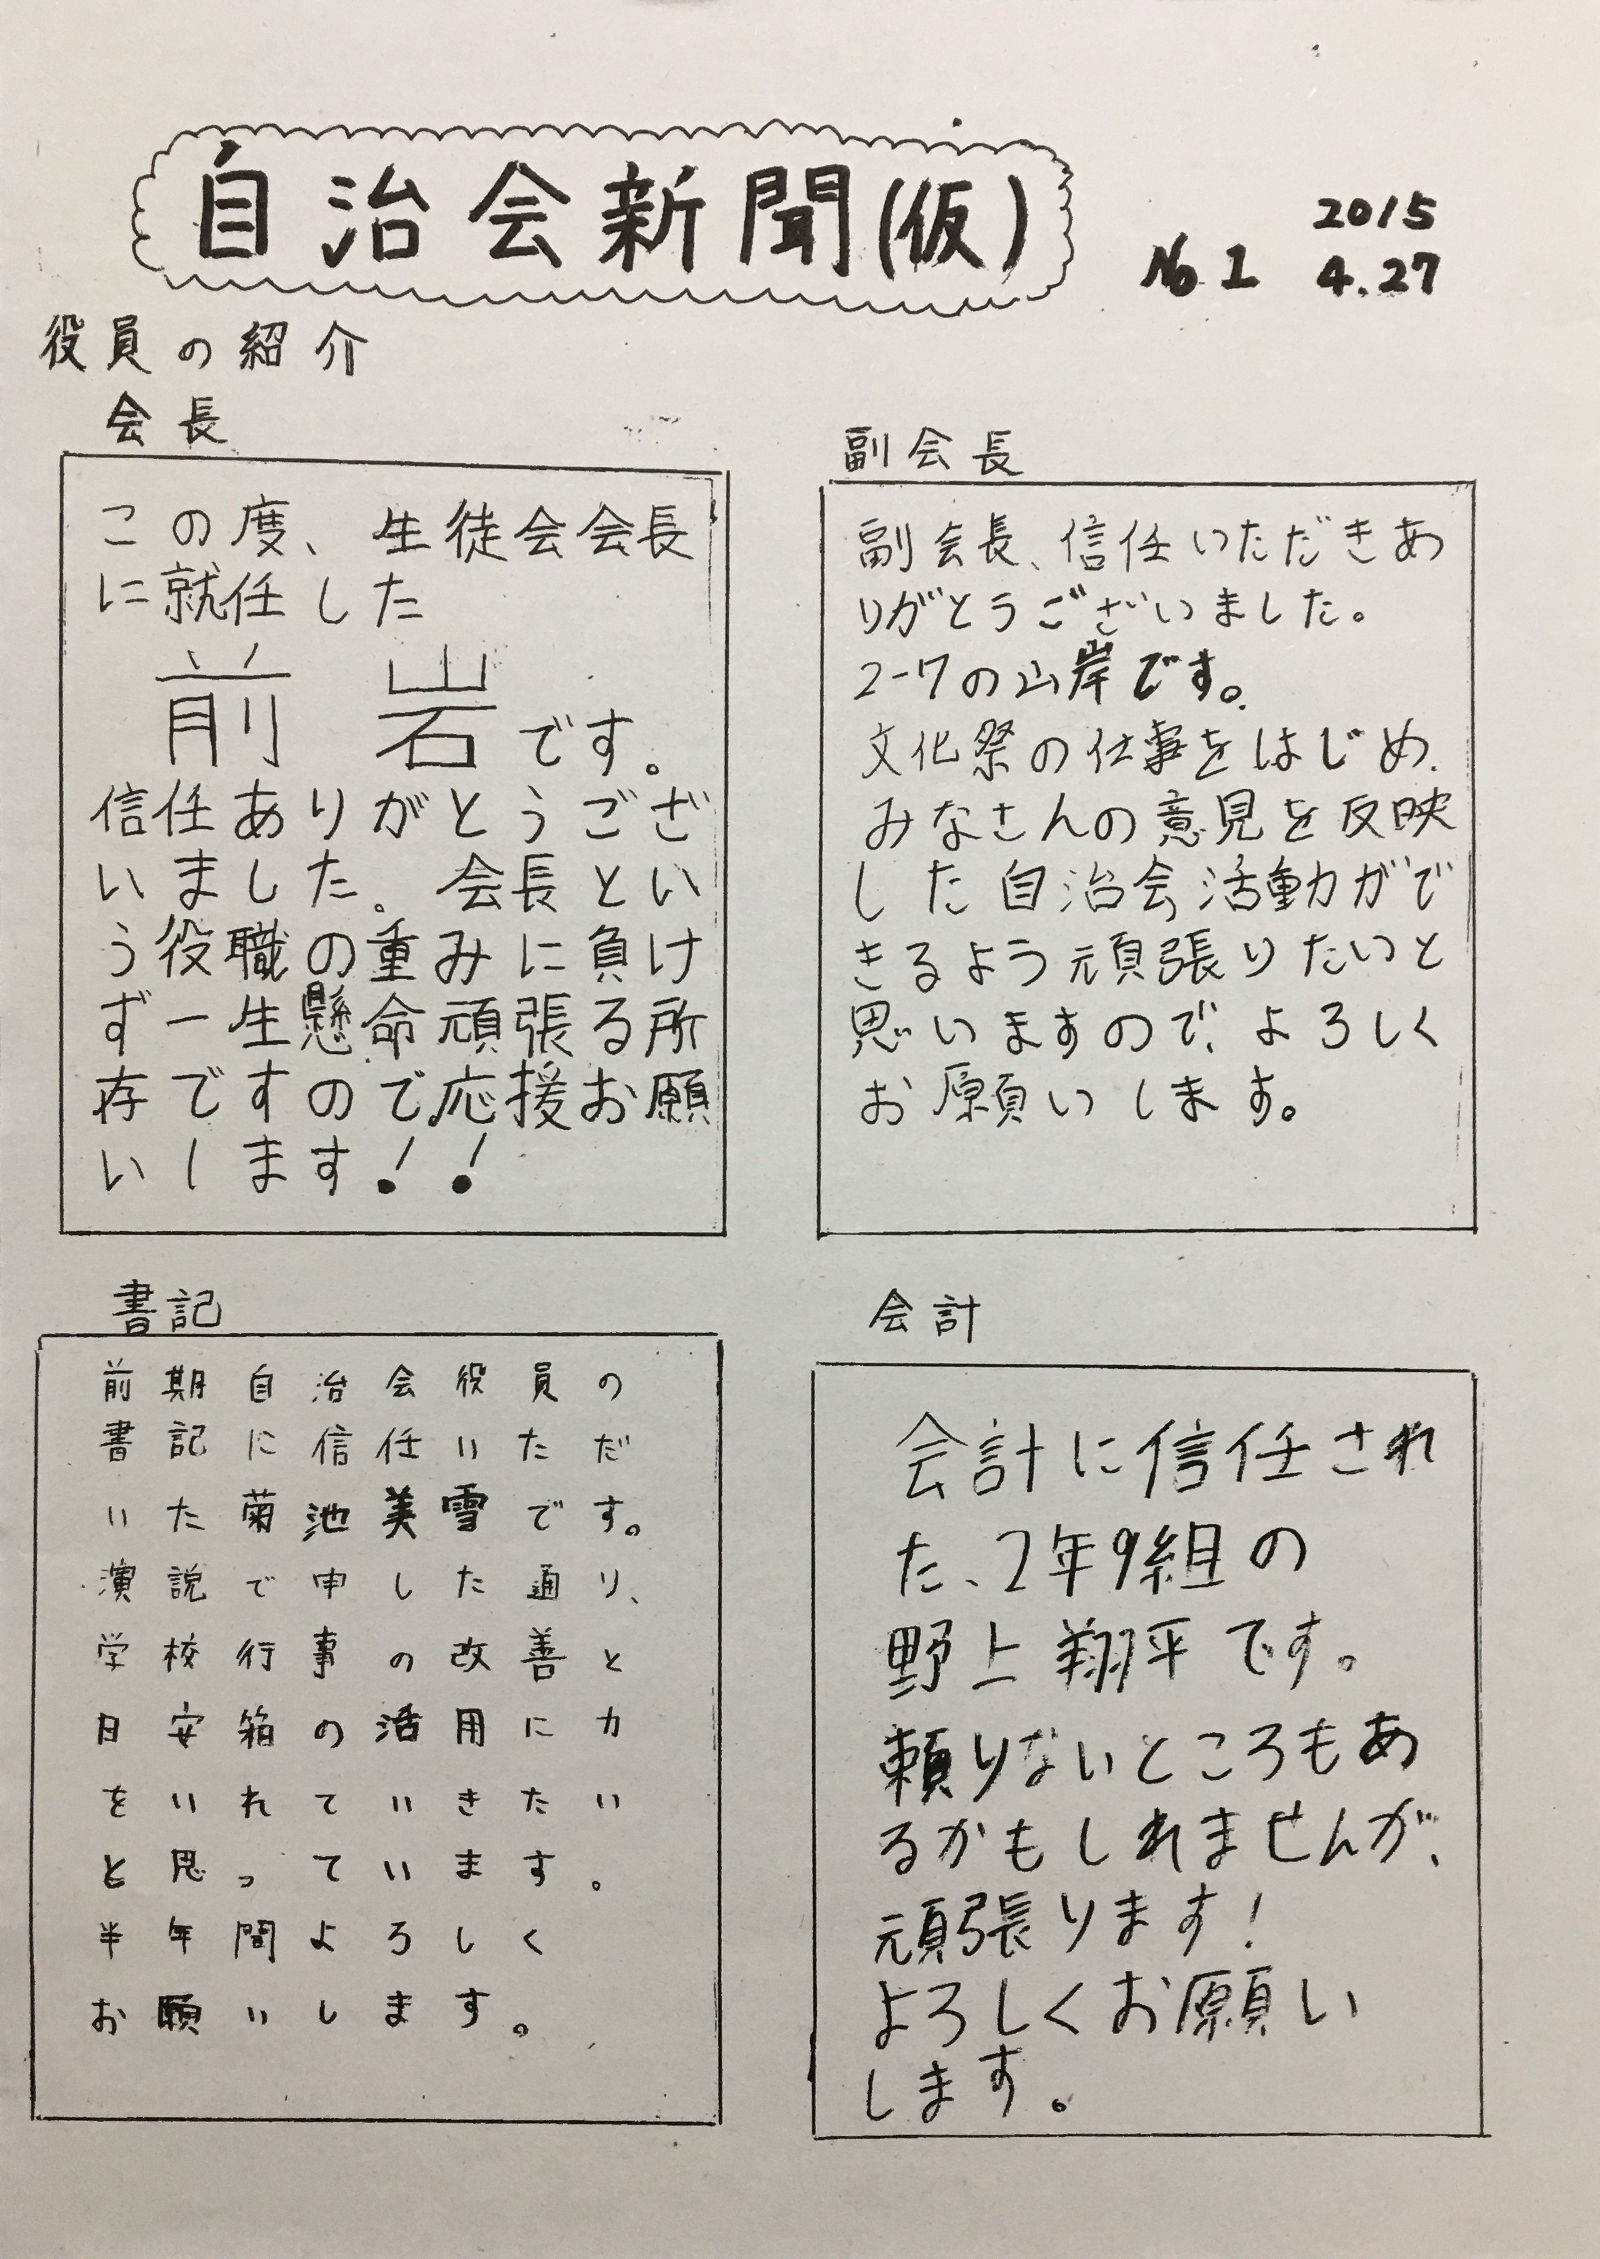 自治会新聞(仮)
No 1
2015
4.27
役員の紹介
会長
この度、生徒会会長
に就任した
前 岩です。
信任ありがとうござ
いました。会長とい
う役職の重みに負け
ず一生懸命頑張る所
存ですので応援お願
いします!!
副会長
副会長、信任いただきあ
りがとうございました。
2-7の山岸です。
文化祭の仕事をはじめ、
みなさんの意見を反映
した自治会活動がで
きるよう頑張りたいと
思いますので、よろしく
お願いします。
書記
前期自治会役員の
書記に信任いただ
いた菊池美雪です。
演説で申した通り、
学校行事の改善と
目安箱の活用に力
をいれていきたい
と思っています。
半年間よろしく
お願いします。
会計
会計に信任され
た、2年9組の
野上翔平です。
頼りないところもあ
るかもしれませんが、
頑張ります!
よろしくお願い
します。